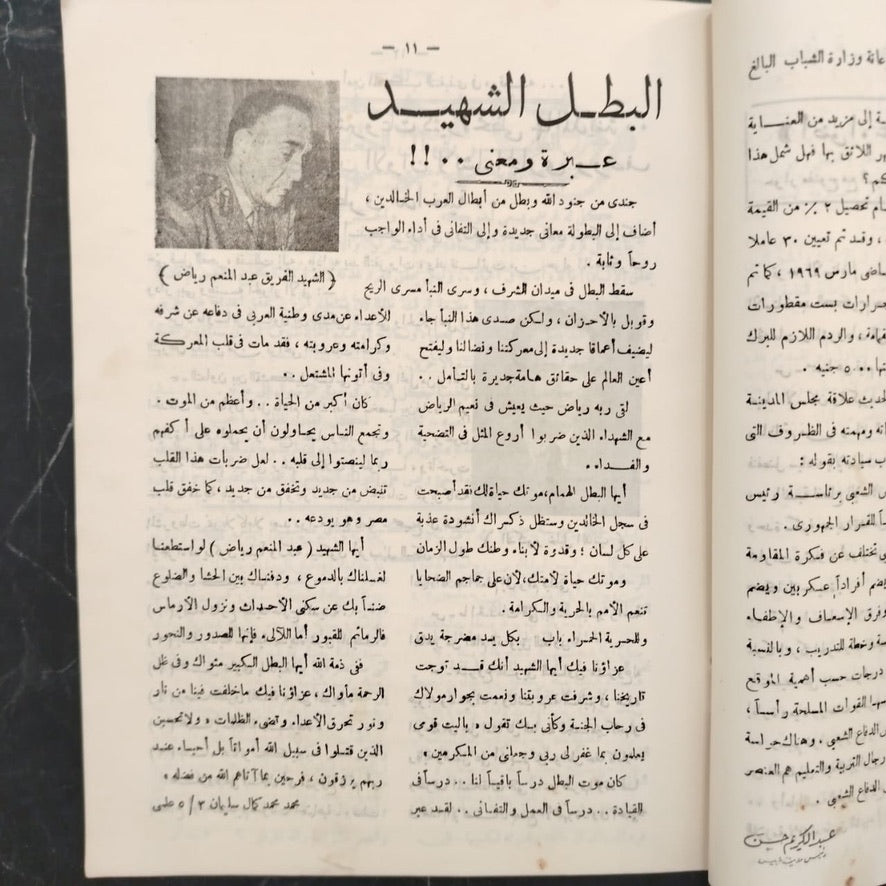 - ١١ -
البطل الشهيد
عبرة ومعنى ٠٠ !!
جندى من جنود الله وبطل من أبطال العرب الخالدين ،
أضاف إلى البطولة معانى جديدة وإلى التفانى فى أداء الواجب
روحاً وثابة .
سقط البطل فى ميدان الشرف ، وسرى النبأ مسرى الريح
وقوبل بالأحزان ، ولكن صدى هذا النبأ جاء
ليضيف أعماقا جديدة إلى معركتنا ونضالنا وليفتح
أعين العالم على حقائق هامة جديرة بالتأمل . .
لقى ربه رياض حيث يعيش فى نعيم الرياض
مع الشهداء الذين ضربوا أروع المثل فى التضحية
والفداء .
أيها البطل الهمام، موتك حياة لك فقد أصبحت
فى سجل الخالدين وستظل ذكراك أنشودة عذبة
على كل لسان ؛ وقدوة لأبناء وطنك طول الزمان
وموتك حياة لأمتك، لأن على جماجم الضحايا
تنعم الأمم بالحرية والكرامة .
وللحرية الحمراء باب بكل يد مضرجة يدق
عزاؤنا فيك أيها الشهيد أنك قد توجت
تاريخنا ، وشرفت عروبتنا ونعمت بجوار مولاك
فى رحاب الجنة وكأنى بك تقول ، ياليت قومى
يعلمون بما غفر لى ربى وجعلنى من المكرمين ،
كان موت البطل درساً باقياً لنا . . درساً فى
القيادة . . درساً فى العمل والتفانى . . لقد عبر
( الشهيد الفريق عبد المنعم رياض )
للأعداء عن مدى وطنية العربى فى دفاعه عن شرفه
وكرامته وعروبته ، فقد مات فى قلب المعركة
وفى أتونها المشتعل . .
كان أكبر من الحياة . . وأعظم من الموت .
وتجمع الناس يحاولون أن يحملوه على أكفهم
ربما لينصتوا إلى قلبه . . لعل ضربات هذا القلب
تنبض من جديد وتخفق من جديد ، كما خفق قلب
مصر وهو يودعه . .
أيها الشهيد ( عبد المنعم رياض ) لو استطعنا
لغسلناك بالدموع ، ودفناك بين الحشا والضلوع
ضناً بك عن سكنى الأحداث ونزول الأرماس
فالرمائم للقبور أما اللآلىء فإنها للصدور والنحور
ففى ذمة الله أيها البطل الكبير مثواك وفى ظل
الرحمة مأواك ، عزاؤنا فيك ما خلفت فينا من نار
ونور تحرق الأعداء وتضىء الظلمات ، ولا تحسبن
الذين قتلوا فى سبيل الله أمواتاً بل أحياء عند
ربهم يرزقون ، فرحين بما آتاهم الله من فضله ،
محمد محمد كمال سليمان ٣ / ٥ علمى
وزارة الشباب البالغ
ة إلى مزيد من العناية
اللائق بها فهل شمل هذا
كم ؟
تحصيل ٢ ٪ من القيمة
، وقد تم تعيين ٣٠ عاملا
اضى مارس ١٩٦٩ ، كما تم
رارات بست مقطورات
، والردم اللازم للبرك
٥٠٠ جنيه .
حديث علاقة مجلس المدينة
ومهمته فى الظروف التى
سيادته بقوله :
الشعبى برئاسة رئيس
للقرار الجمهورى .
تختلف عن فكرة المقاومة
يضم أفراداً عسكريين ويضم
وفرق الإسعاف والإطفاء
وخطة للتدريب ، وبالنسبة
درجات حسب أهمية الموقع
القوات المسلحة رأسياً ،
الدفاع الشعبى . وهناك حراسة
رجال التربية والتعليم هم العنصر
الدفاع الشعبى .
عبد الكريم حسين